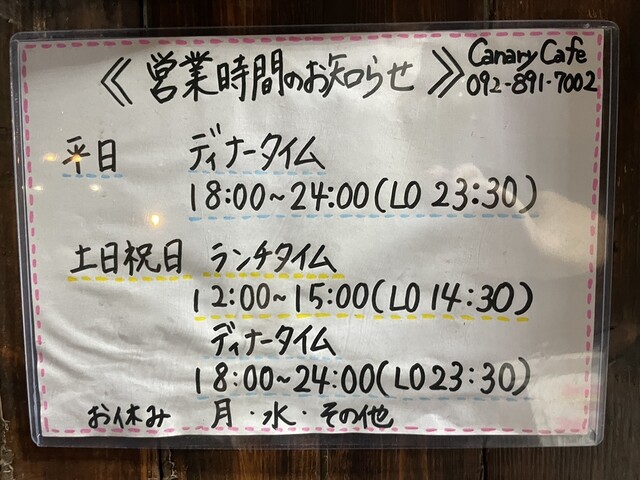 《営業時間のお知らせ》
Canary Cafe
092-891-7002
平日 ディナータイム
18:00~24:00(LO 23:30)
土日祝日 ランチタイム
12:00~15:00(LO 14:30)
ディナータイム
18:00~24:00(LO23:30)
お休み 月・水・その他